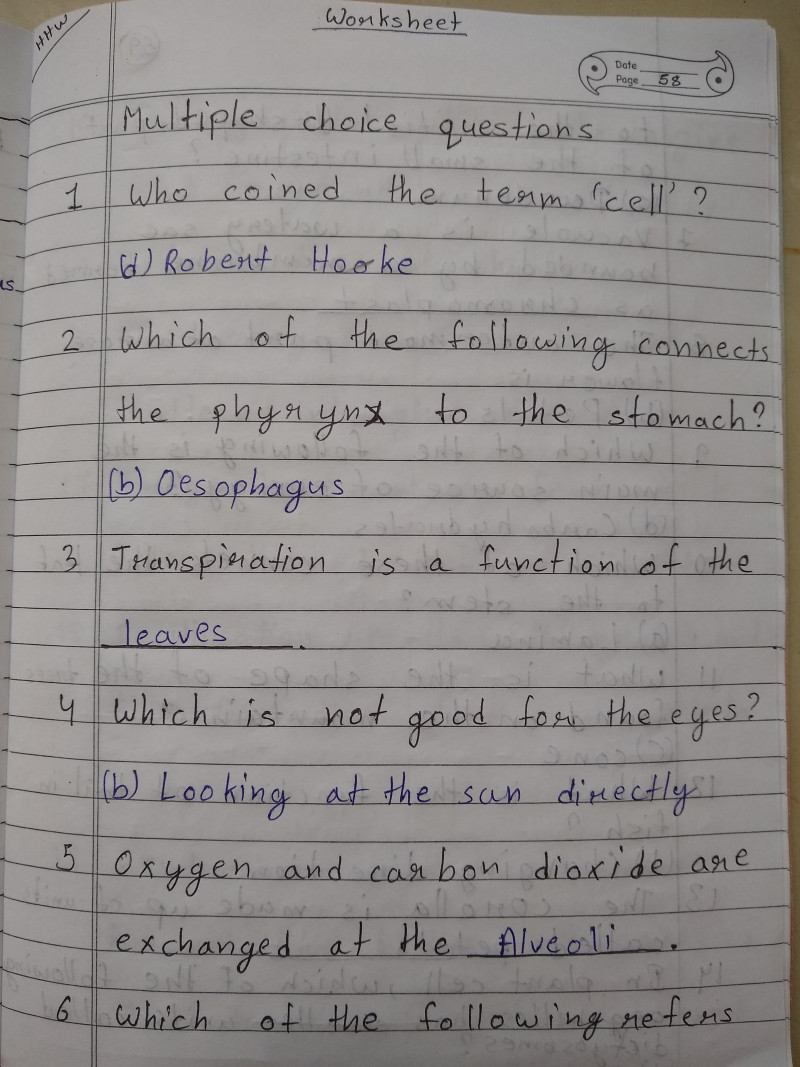 HHW
Worksheet
Date
Page 58
Multiple choice questions
1 Who coined the term 'cell'?
(d) Robert Hooke
2 Which of the following connects
the phyrynx to the stomach?
(b) Oesophagus
3 Transpiration is a function of the
leaves.
4 Which is not good for the eyes?
(b) Looking at the sun directly
5 Oxygen and carbon dioxide are
exchanged at the Alveoli.
6 Which of the following refers